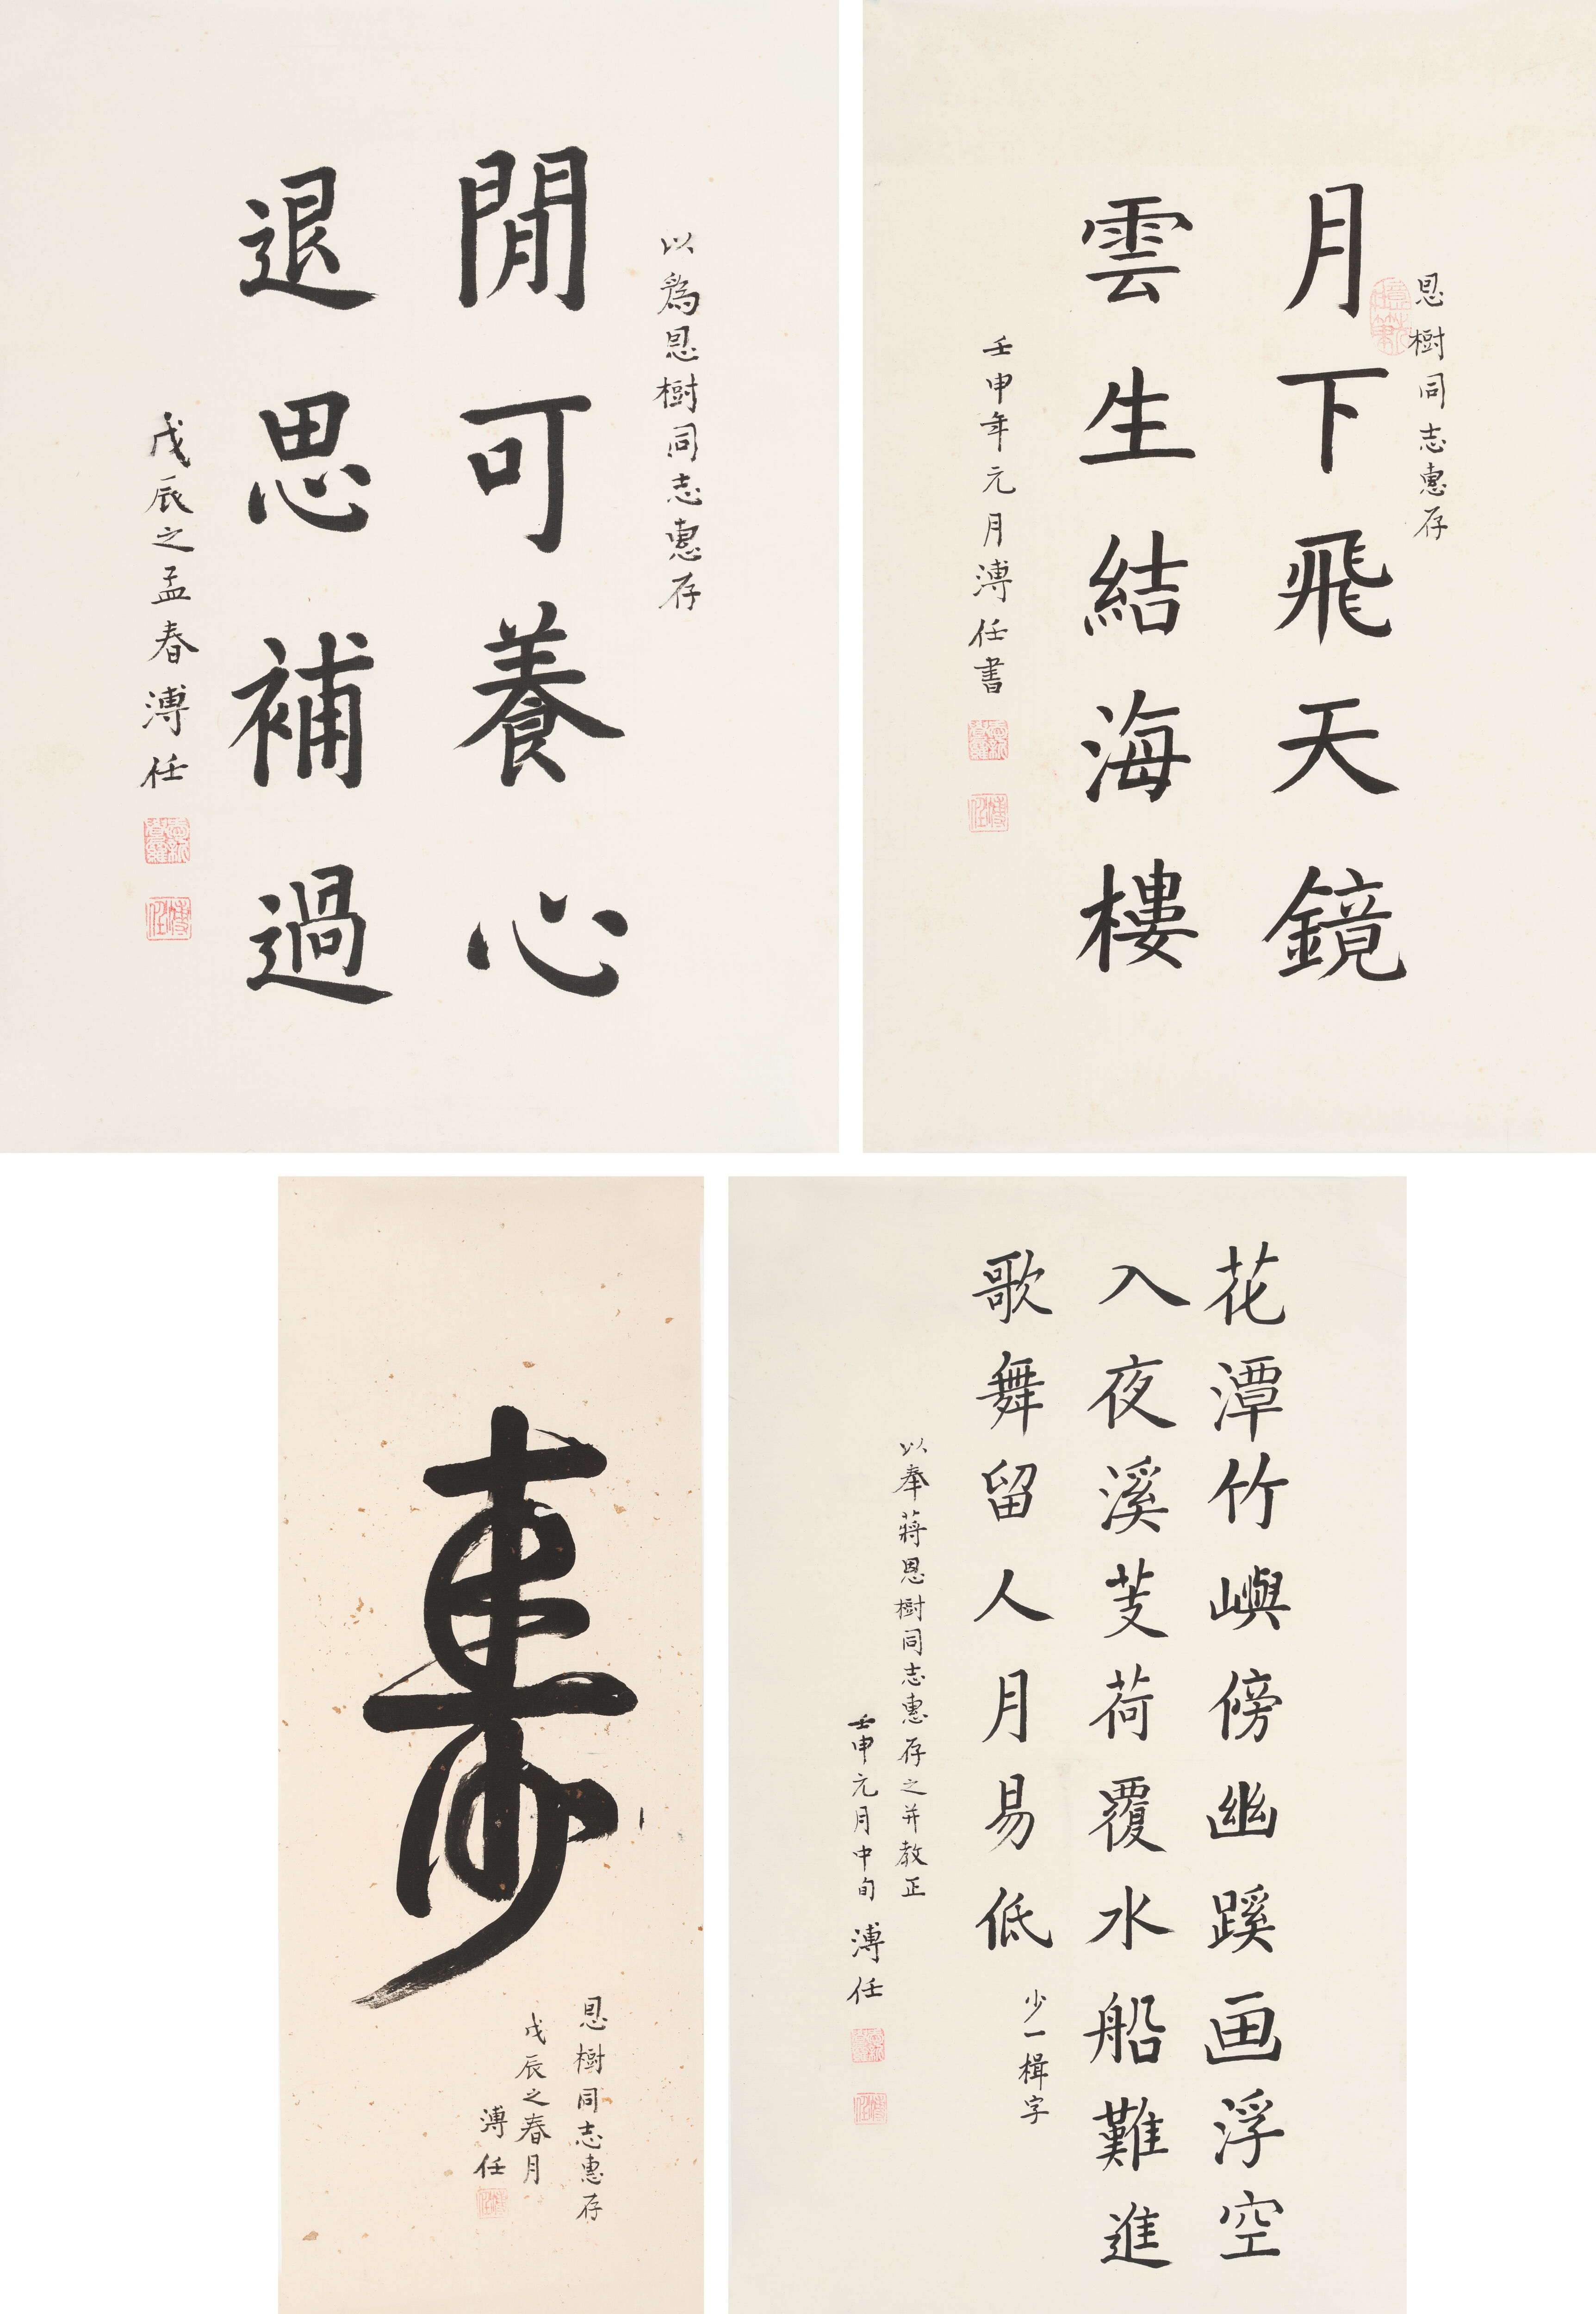 以爲恩樹同志惠存
閒可養心
退思補過
戊辰之孟春溥任
愛新覺羅
溥任
恩樹同志惠存
月下飛天鏡
雲生結海樓
壬申年元月溥任書
愛新覺羅
溥任
壽
恩樹同志惠存
戊辰之春月
溥任
溥任
花潭竹嶼傍幽蹊画浮空
入夜溪芰荷覆水船難進
歌舞留人月易低
少一楫字
以奉蔣恩樹同志惠存之并教正
壬申元月中旬溥任
愛新覺羅
溥任